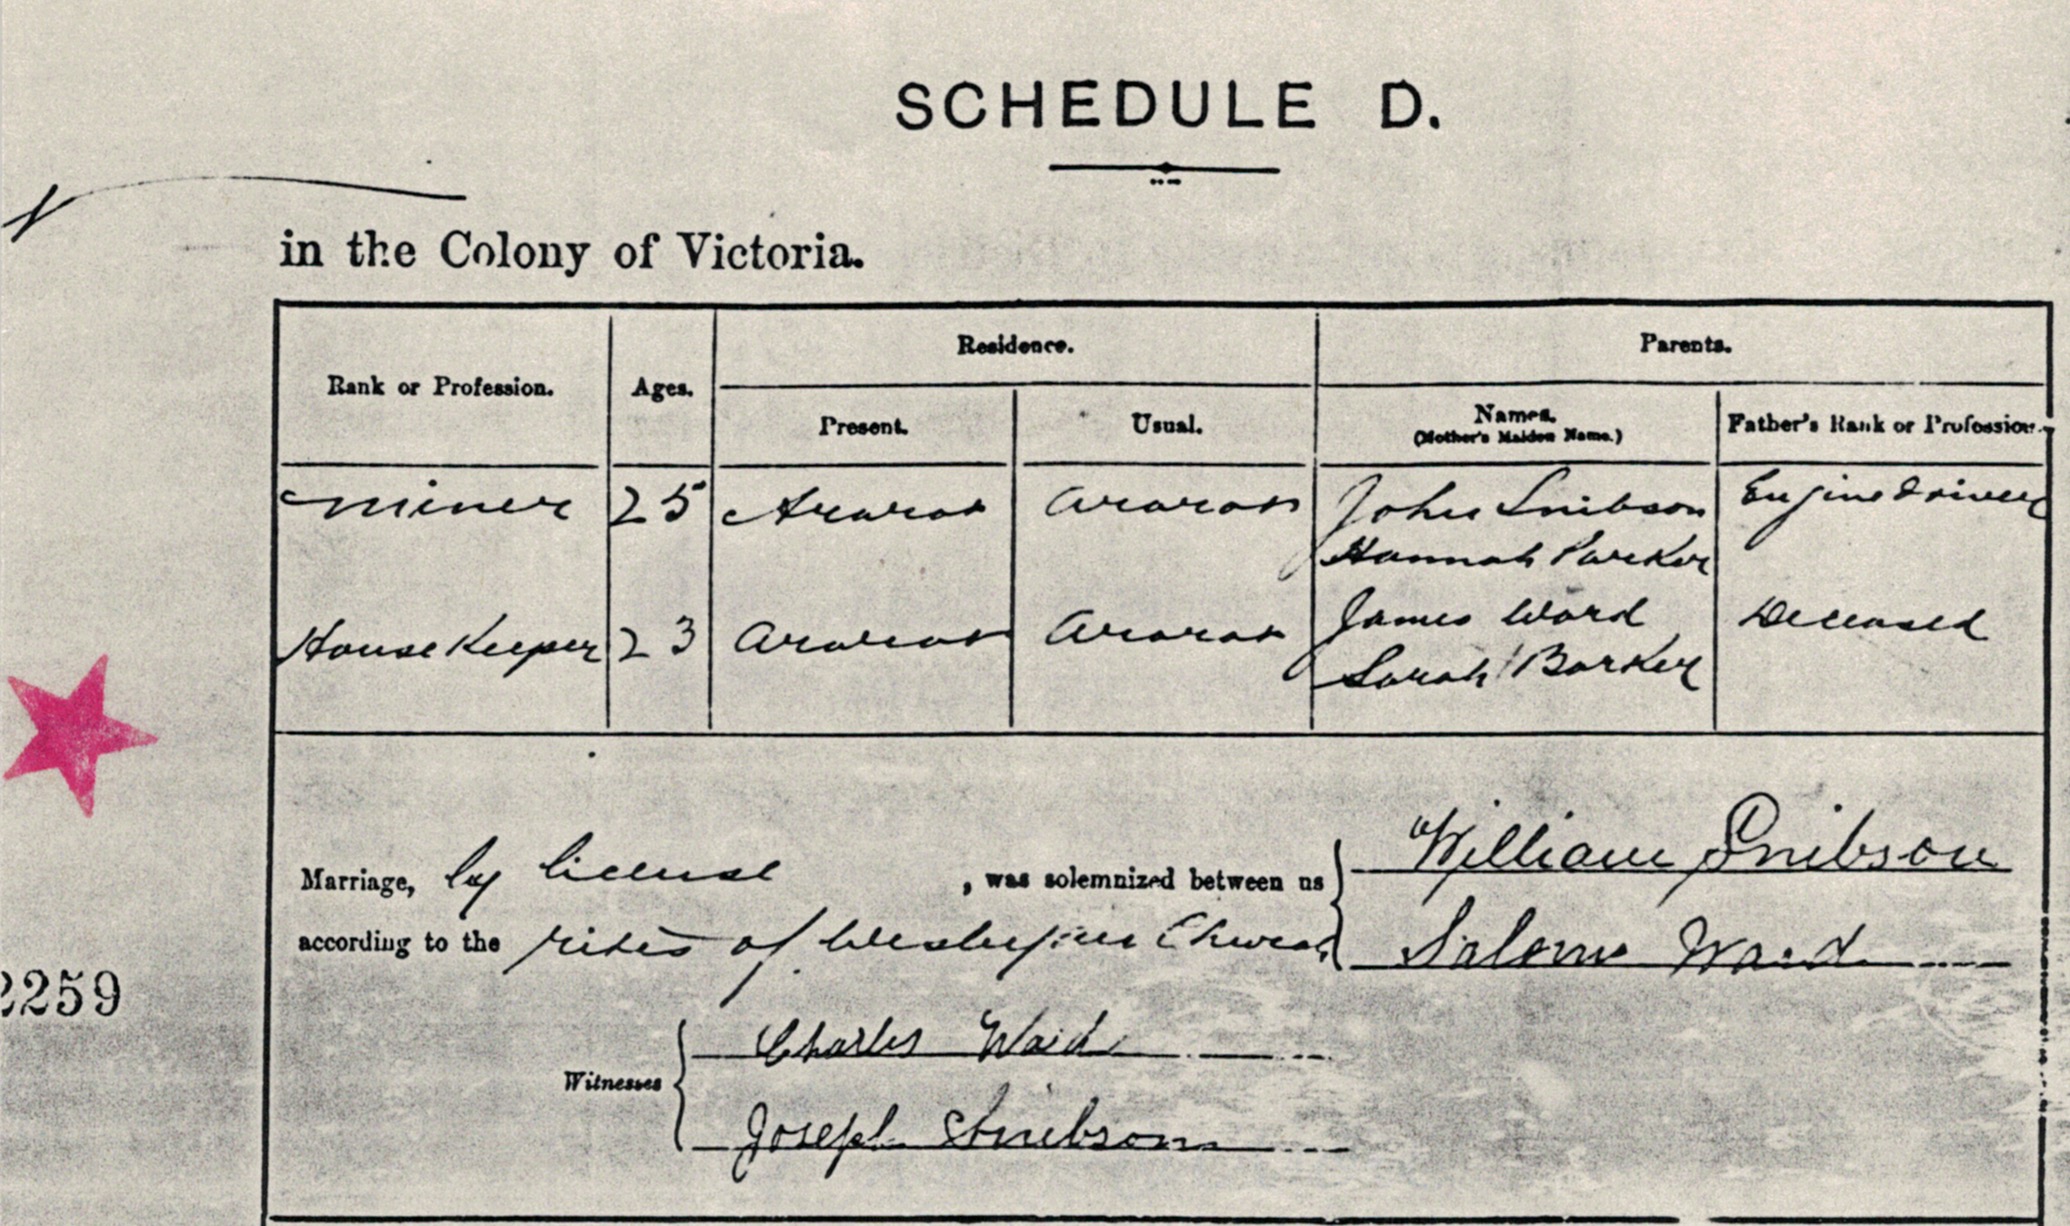 SCHEDULE D.
in the Colony of Victoria.
Rank or Profession. Ages. Residence. Parents.
Present. Usual. Names. Father's Rank or Profession.
(Mother's Maiden Name.)
Miner 25 Ararat Ararat John Snibson Engine Driver
Hannah Parker
House Keeper 23 Ararat Ararat James Ward Deceased
Sarah Barker
William Snibson
Marriage, by license , was solemnized between us
according to the rites of Wesleyan Church Salome Ward
2259
Charles Ward
Witnesses
Joseph Snibson